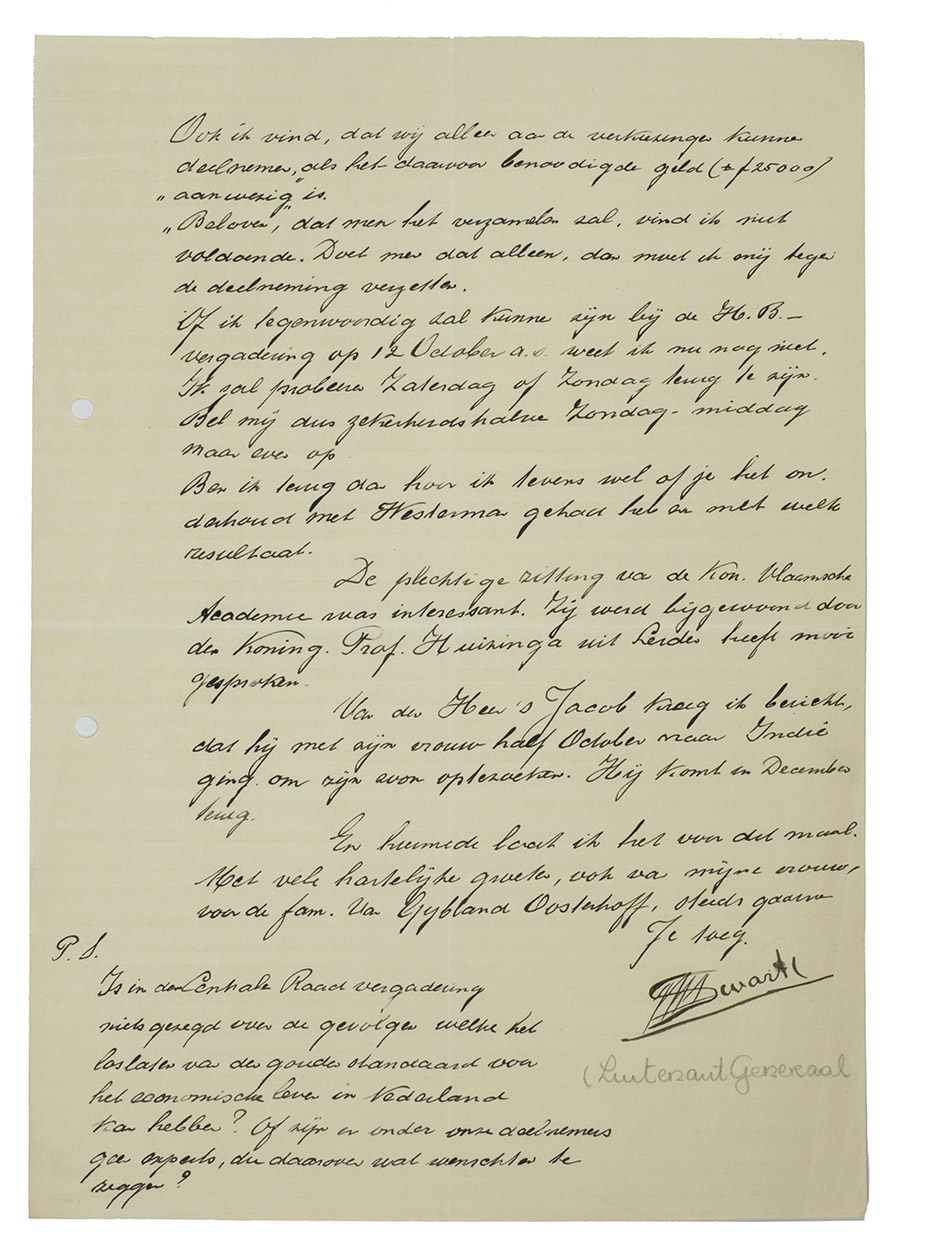 Ook ik vind, dat wij alleen aan de verkiezingen kunnen
deelnemen, als het daarvoor benoodigde geld (± f 25000)
„aanwezig" is.
„Beloven", dat men het verzamelen zal, vind ik niet
voldoende. Doet men dat alleen, dan moet ik mij tegen
de deelneming verzetten.
Of ik tegenwoordig zal kunnen zijn bij de H.B.–
vergadering op 12 October a.s. weet ik nu nog niet.
Ik zal probeeren Zaterdag of Zondag terug te zijn.
Bel mij dus zekerheidshalve Zondag-middag
maar even op
Ben ik terug dan hoor ik tevens wel of je het on-
derhoud met Westerman gehad hebt en met welk
resultaat.
De plechtige zitting van de Kon. Vlaamsche
Academie was interessant. Zij werd bijgewoond door
den Koning. Prof. Huizinga uit Leiden heeft mooi
gesproken.
Van den Heer 's Jacob kreeg ik bericht,
dat hij met zijn vrouw half October naar Indië
ging om zijn zoon optezoeken. Hij komt in December
terug.
En hiermede laat ik het voor dit maal.
Met vele hartelijke groeten, ook van mijne vrouw,
voor de fam. Van Gybland Oosterhoff, steeds gaarne
Je toeg.
Swart
(Luitenant Generaal
P.S.
Is in den Centrale Raad vergadering
niets gezegd over de gevolgen welke het
loslaten van den gouden standaard voor
het economische leven in Nederland
kan hebben? Of zijn er onder onze deelnemers
geen experts, die daarover wat wenschten te
zeggen?